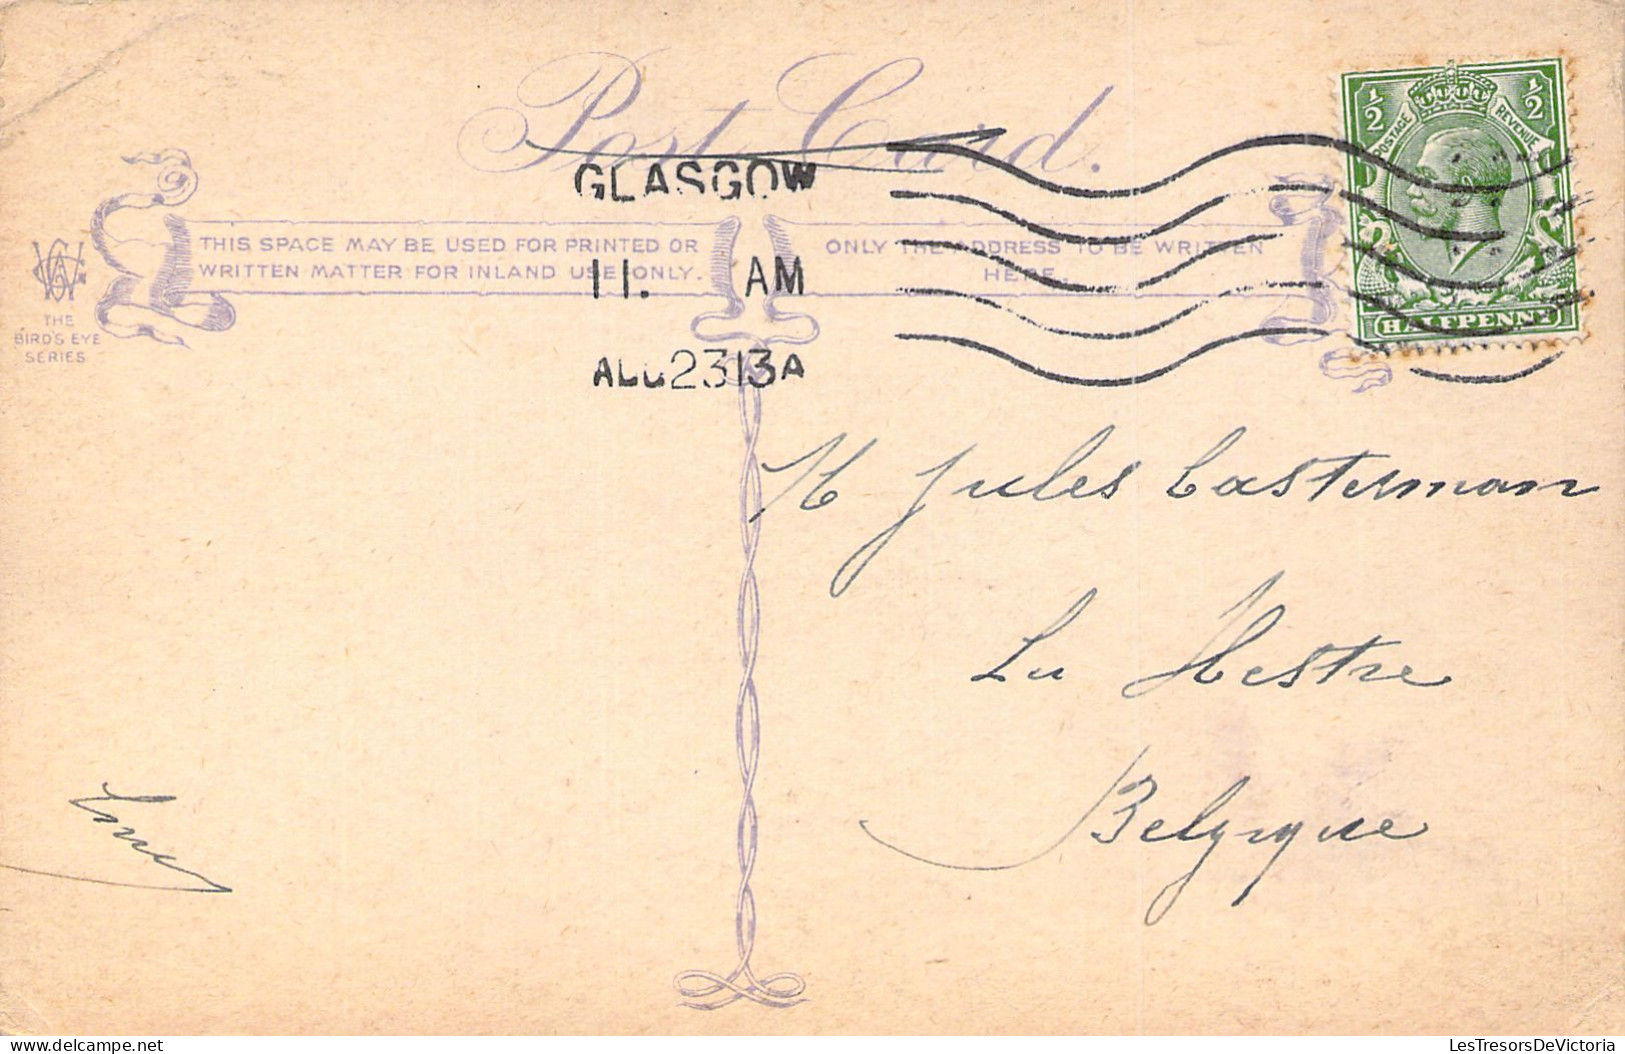 Post Card.
GLASGOW
11. AM
AUG 23 13 A
THIS SPACE MAY BE USED FOR PRINTED OR
WRITTEN MATTER FOR INLAND USE ONLY.
ONLY THE ADDRESS TO BE WRITTEN
HERE.
THE
BIRD'S EYE
SERIES
½ ½
POSTAGE REVENUE
HALFPENNY
M Jules Casterman
La Hestre
Belgique
delcampe.net
LesTresorsDeVictoria